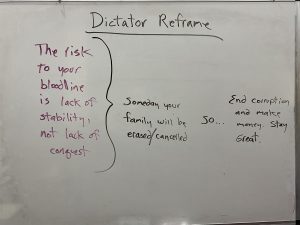 Dictator Reframe
The risk
to your
bloodline
is lack of
stability,
not lack of
conquest
Someday your
family will be
erased/cancelled
So...
End corruption
and make
money. Stay
Great.